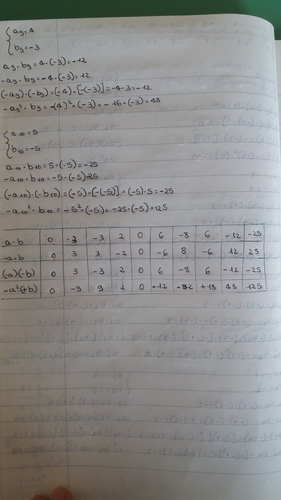 a₉ = 4
b₉ = -3
a₉ · b₉ = 4 · (-3) = -12
-a₉ · b₉ = -4 · (-3) = 12
(-a₉) · (-b₉) = (-4) · [-(-3)] = -4 · 3 = -12
-a₉² · b₉ = -(4)² · (-3) = -16 · (-3) = 48
a₁₀ = 5
b₁₀ = -5
a₁₀ · b₁₀ = 5 · (-5) = -25
-a₁₀ · b₁₀ = -5 · (-5) = 25
(-a₁₀) · (-b₁₀) = (-5) · [-(-5)] = (-5) · 5 = -25
-a₁₀² · b₁₀ = -5² · (-5) = -25 · (-5) = 125
a·b 0 -3 -3 2 0 6 -8 6 -12 -25
-a·b 0 3 3 -2 0 -6 8 -6 12 25
(-a)(-b) 0 3 -3 2 0 6 -8 6 -12 -25
-a²(+b) 0 -9 9 2 0 +12 -32 +18 48 125